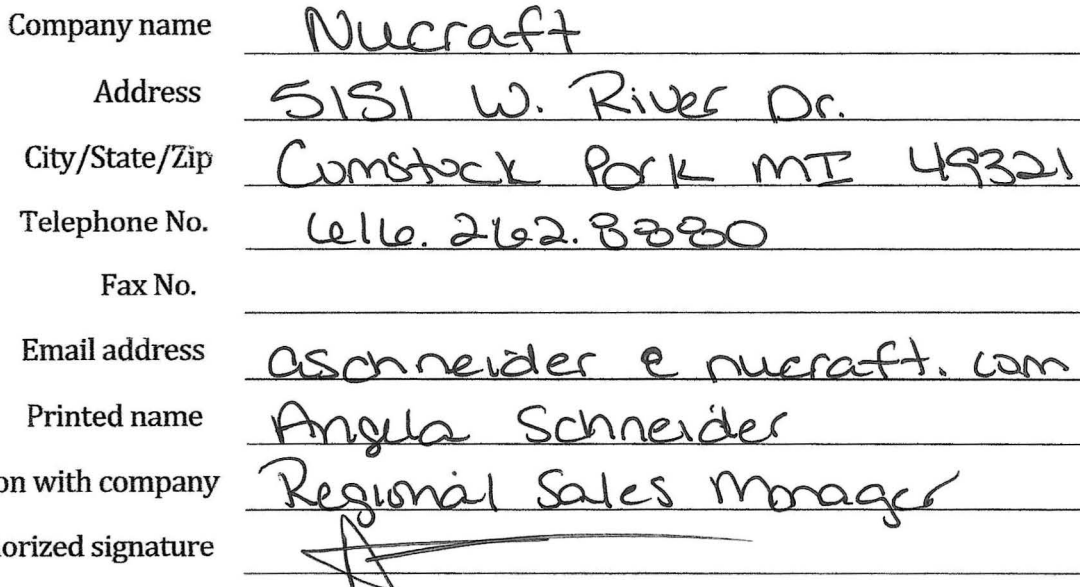 Company name Nucraft
Address 5151 W. River Dr.
City/State/Zip Comstock Park MI 49321
Telephone No. 616.262.8880
Fax No.
Email address aschneider@nucraft.com
Printed name Angela Schneider
on with company Regional Sales Manager
orized signature